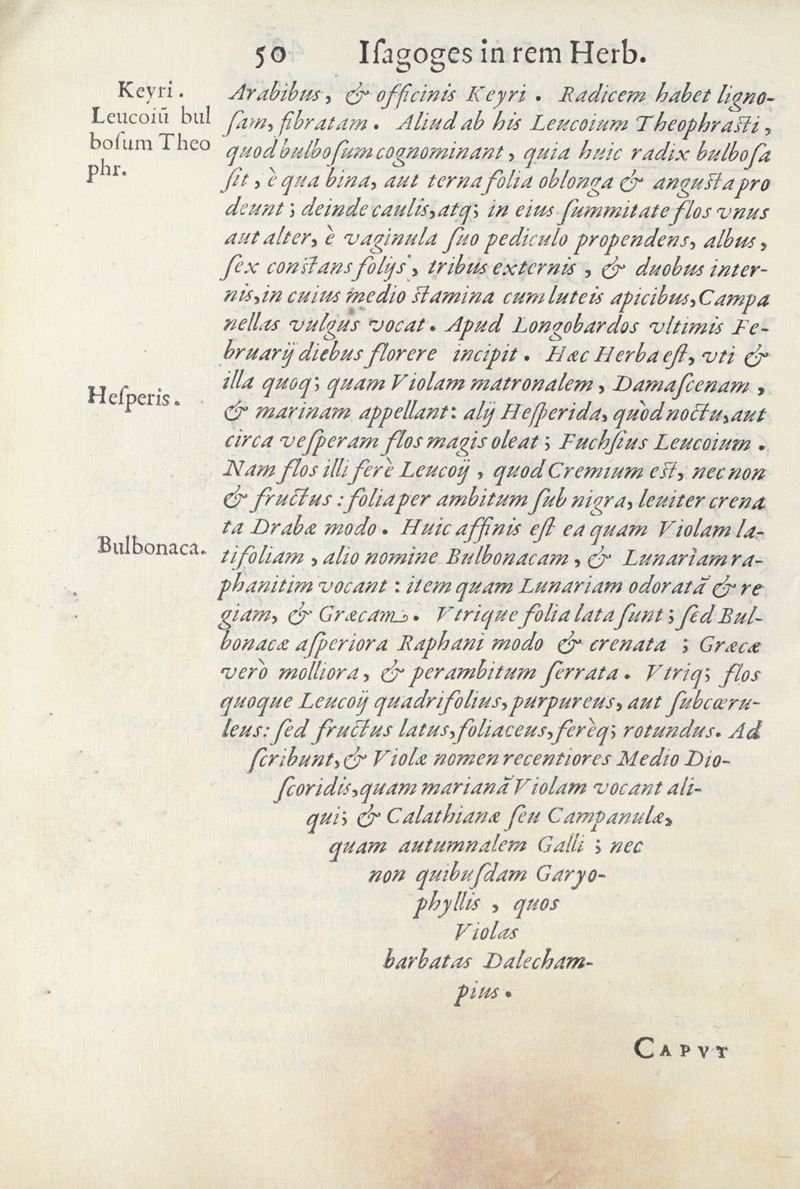 50 Iſagoges in rem Herb.
Keyri.
Leucoiũ bul
boſum Theo
phr.
Arabibus, & officinis Keyri. Radicem habet ligno-
ſam, fibratam. Aliud ab his Leucoium Theophraſti,
quod bulboſum cognominant, quia huic radix bulboſa
ſit, è qua bina, aut terna folia oblonga & anguſta pro
deunt; deinde caulis, atq; in eius ſummitate flos vnus
aut alter, è vaginula ſuo pediculo propendens, albus,
ſex conſtans folijs, tribus externis, & duobus inter-
nis, in cuius medio ſtamina cum luteis apicibus, Campa
nellas vulgus vocat. Apud Longobardos vltimis Fe-
bruarij diebus florere incipit. Hæc Herba eſt, vti &
Heſperis.
illa quoq; quam Violam matronalem, Damaſcenam,
& marinam appellant: alij Heſperida, quòd noctu, aut
circa veſperam flos magis oleat; Fuchſius Leucoium.
Nam flos illi ferè Leucoij, quod Cremium eſt, nec non
& fructus: folia per ambitum ſub nigra, leuiter crena
ta Drabæ modo. Huic affinis eſt ea quam Violam la-
Bulbonaca.
tifoliam, alio nomine Bulbonacam, & Lunariam ra-
phanitim vocant: item quam Lunariam odoratã & re
giam, & Græcam. Vtrique folia lata ſunt; ſed Bul-
bonacæ aſperiora Raphani modo & crenata; Græcæ
verò molliora, & per ambitum ſerrata. Vtriq; flos
quoque Leucoij quadrifolius, purpureus, aut ſubcœru-
leus: ſed fructus latus, foliaceus, ferèq; rotundus. Ad
ſcribunt, & Violæ nomen recentiores Medio Dio-
ſcoridis, quam marianã Violam vocant ali-
qui; & Calathianæ ſeu Campanulæ,
quam autumnalem Galli; nec
non quibuſdam Garyo-
phyllis, quos
Violas
barbatas Dalecham-
pius.
CAPVT